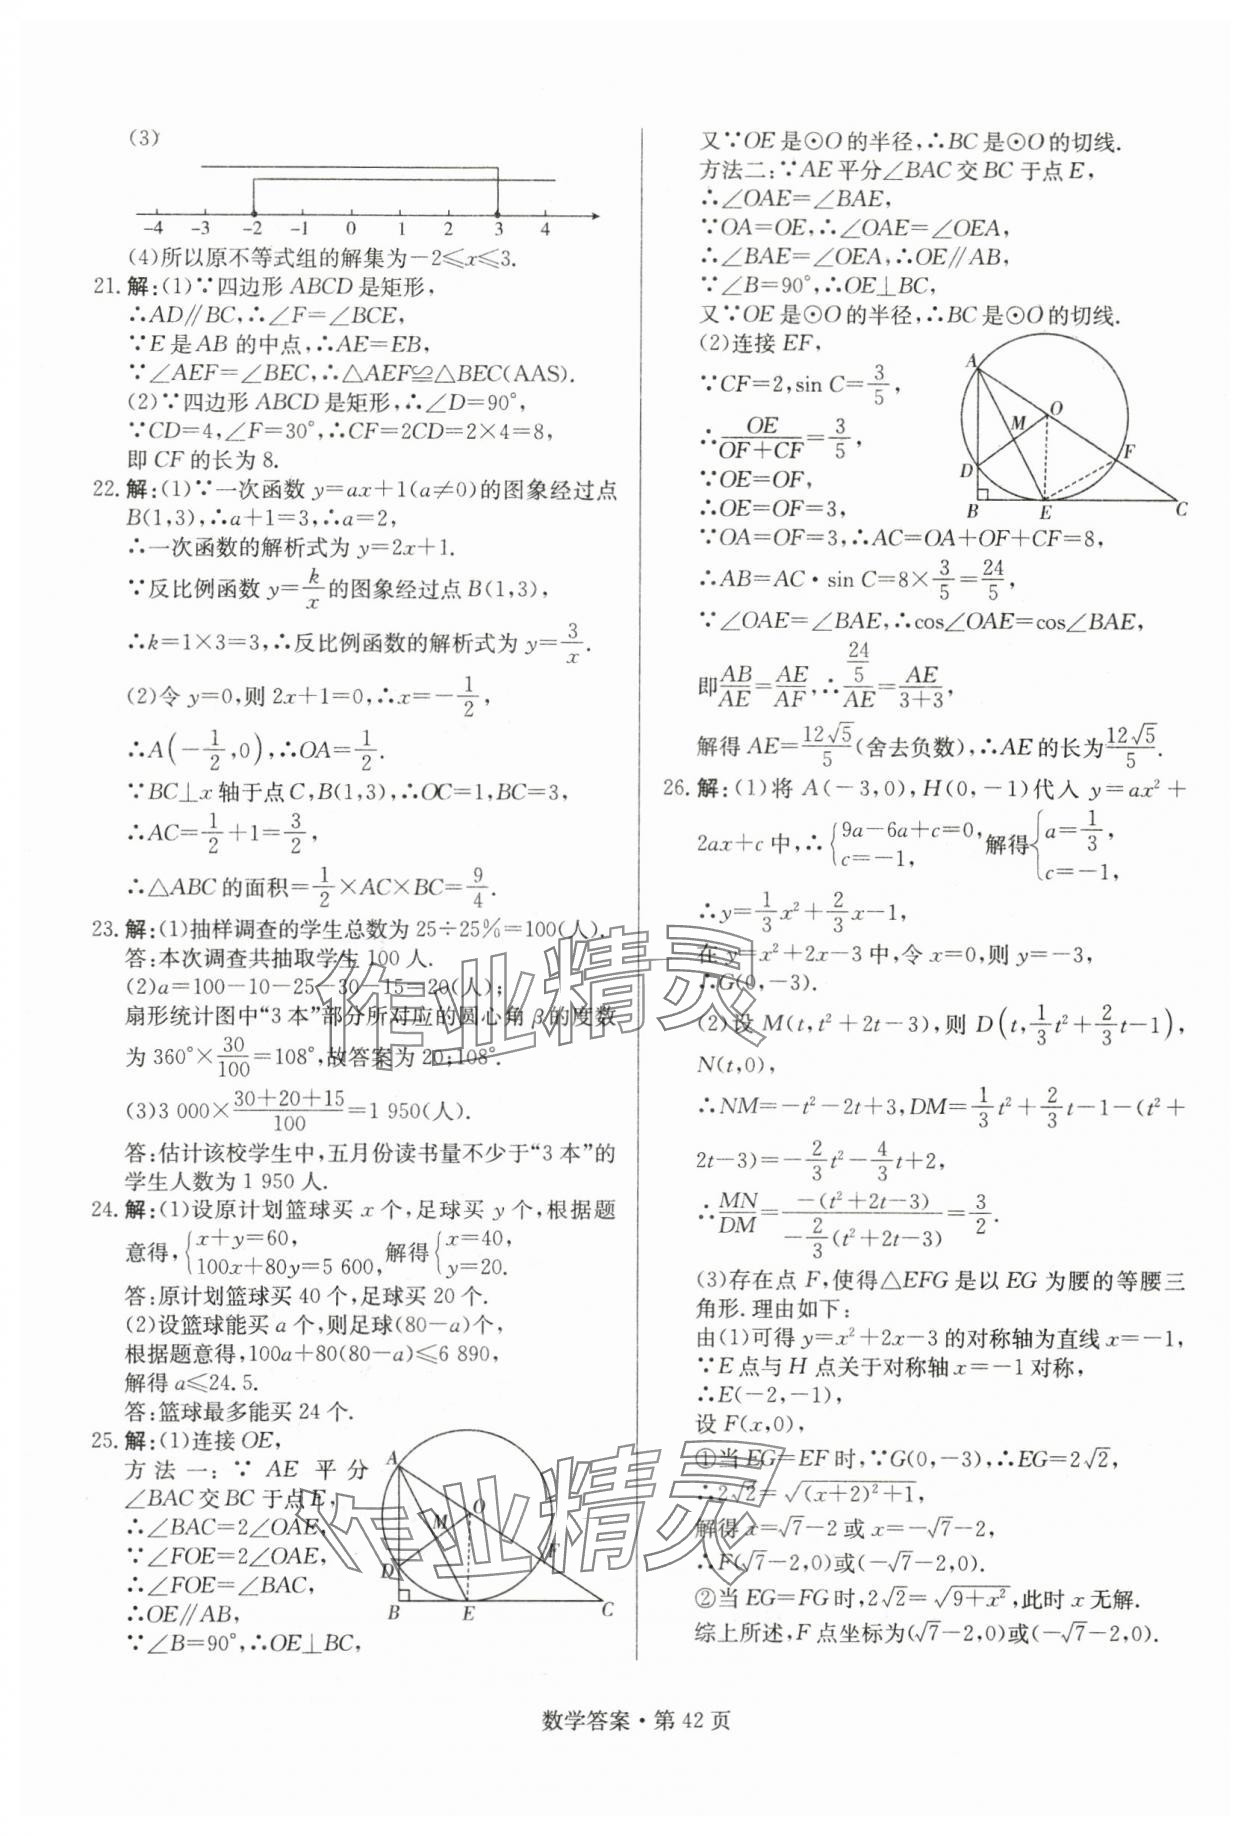 (3)
-4 -3 -2 -1 0 1 2 3 4
(4)所以原不等式组的解集为-2≤x≤3.
21.解:(1)∵四边形ABCD是矩形,
∴AD∥BC,∴∠F=∠BCE,
∵E是AB的中点,∴AE=EB,
∵∠AEF=∠BEC,∴△AEF≌△BEC(AAS).
(2)∵四边形ABCD是矩形,∴∠D=90°,
∵CD=4,∠F=30°,∴CF=2CD=2×4=8,
即CF的长为8.
22.解:(1)∵一次函数y=ax+1(a≠0)的图象经过点
B(1,3),∴a+1=3,∴a=2,
∴一次函数的解析式为y=2x+1.
∵反比例函数y=k/x的图象经过点B(1,3),
∴k=1×3=3,∴反比例函数的解析式为y=3/x.
(2)令y=0,则2x+1=0,∴x=-1/2,
∴A(-1/2,0),∴OA=1/2.
∵BC⊥x轴于点C,B(1,3),∴OC=1,BC=3,
∴AC=1/2+1=3/2,
∴△ABC的面积=1/2×AC×BC=9/4.
23.解:(1)抽样调查的学生总数为25÷25%=100(人).
答:本次调查共抽取学生100人.
(2)a=100-10-25-30-15=20(人);
扇形统计图中“3本”部分所对应的圆心角β的度数
为360°×30/100=108°,故答案为20;108°.
(3)3 000×(30+20+15)/100=1 950(人).
答:估计该校学生中,五月份读书量不少于“3本”的
学生人数为1 950人.
24.解:(1)设原计划篮球买x个,足球买y个,根据题
意得,{x+y=60, 100x+80y=5 600,解得{x=40, y=20.
答:原计划篮球买40个,足球买20个.
(2)设篮球能买a个,则足球(80-a)个,
根据题意得,100a+80(80-a)≤6 890,
解得a≤24.5.
答:篮球最多能买24个.
25.解:(1)连接OE,
方法一:∵AE平分
∠BAC交BC于点E,
∴∠BAC=2∠OAE,
∵∠FOE=2∠OAE,
∴∠FOE=∠BAC,
∴OE∥AB,
∵∠B=90°,∴OE⊥BC,
A O M F D B E C
又∵OE是⊙O的半径,∴BC是⊙O的切线.
方法二:∵AE平分∠BAC交BC于点E,
∴∠OAE=∠BAE,
∵OA=OE,∴∠OAE=∠OEA,
∴∠BAE=∠OEA,∴OE∥AB,
∵∠B=90°,∴OE⊥BC,
又∵OE是⊙O的半径,∴BC是⊙O的切线.
(2)连接EF,
∵CF=2,sin C=3/5,
∴OE/(OF+CF)=3/5,
∵OE=OF,
∴OE=OF=3,
A O M F D B E C
∵OA=OF=3,∴AC=OA+OF+CF=8,
∴AB=AC·sin C=8×3/5=24/5,
∵∠OAE=∠BAE,∴cos∠OAE=cos∠BAE,
即AB/AE=AE/AF,∴(24/5)/AE=AE/(3+3),
解得AE=12√5/5(舍去负数),∴AE的长为12√5/5.
26.解:(1)将A(-3,0),H(0,-1)代入y=ax²+
2ax+c中,∴{9a-6a+c=0, c=-1,解得{a=1/3, c=-1,
∴y=1/3x²+2/3x-1,
在y=x²+2x-3中,令x=0,则y=-3,
∴G(0,-3).
(2)设M(t,t²+2t-3),则D(t,1/3t²+2/3t-1),
N(t,0),
∴NM=-t²-2t+3,DM=1/3t²+2/3t-1-(t²+
2t-3)=-2/3t²-4/3t+2,
∴MN/DM=-(t²+2t-3)/(-2/3(t²+2t-3))=3/2.
(3)存在点F,使得△EFG是以EG为腰的等腰三
角形.理由如下:
由(1)可得y=x²+2x-3的对称轴为直线x=-1,
∵E点与H点关于对称轴x=-1对称,
∴E(-2,-1),
设F(x,0),
①当EG=EF时,∵G(0,-3),∴EG=2√2,
∴2√2=√((x+2)²+1),
解得x=√7-2或x=-√7-2,
∴F(√7-2,0)或(-√7-2,0).
②当EG=FG时,2√2=√(9+x²),此时x无解.
综上所述,F点坐标为(√7-2,0)或(-√7-2,0).
作业精灵
作业精灵
数学答案·第42页